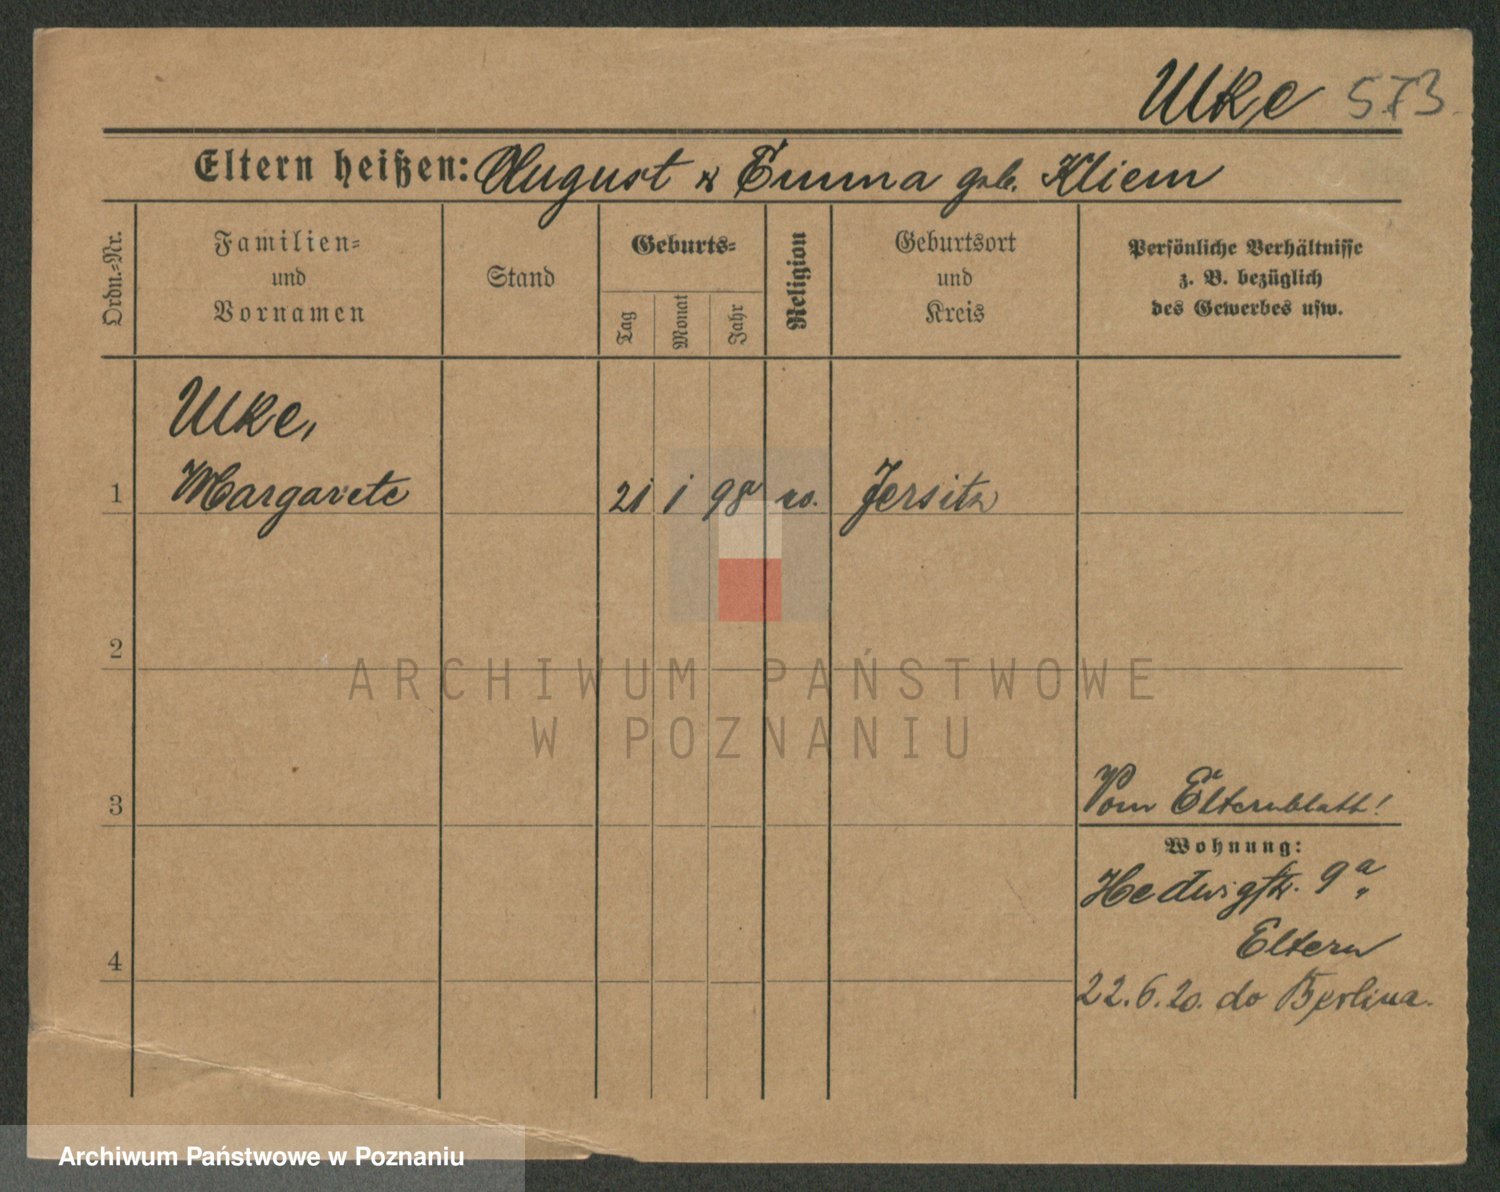 Uke 573.
Eltern heißen: August & Emma geb. Kliem
Ordn.=Nr.
Familien=
und
Vornamen
Stand
Geburts=
Tag
Monat
Jahr
Religion
Geburtsort
und
Kreis
Persönliche Verhältnisse
z. B. bezüglich
des Gewerbes usw.
Uke,
1 Margarete 21 1 98 Jersitz
2
ARCHIWUM PAŃSTWOWE
W POZNANIU
3 Vom Elternblatt!
Wohnung:
Hedwigstr. 9a,
Eltern
4
22.6.20. do Berlina.
Archiwum Państwowe w Poznaniu